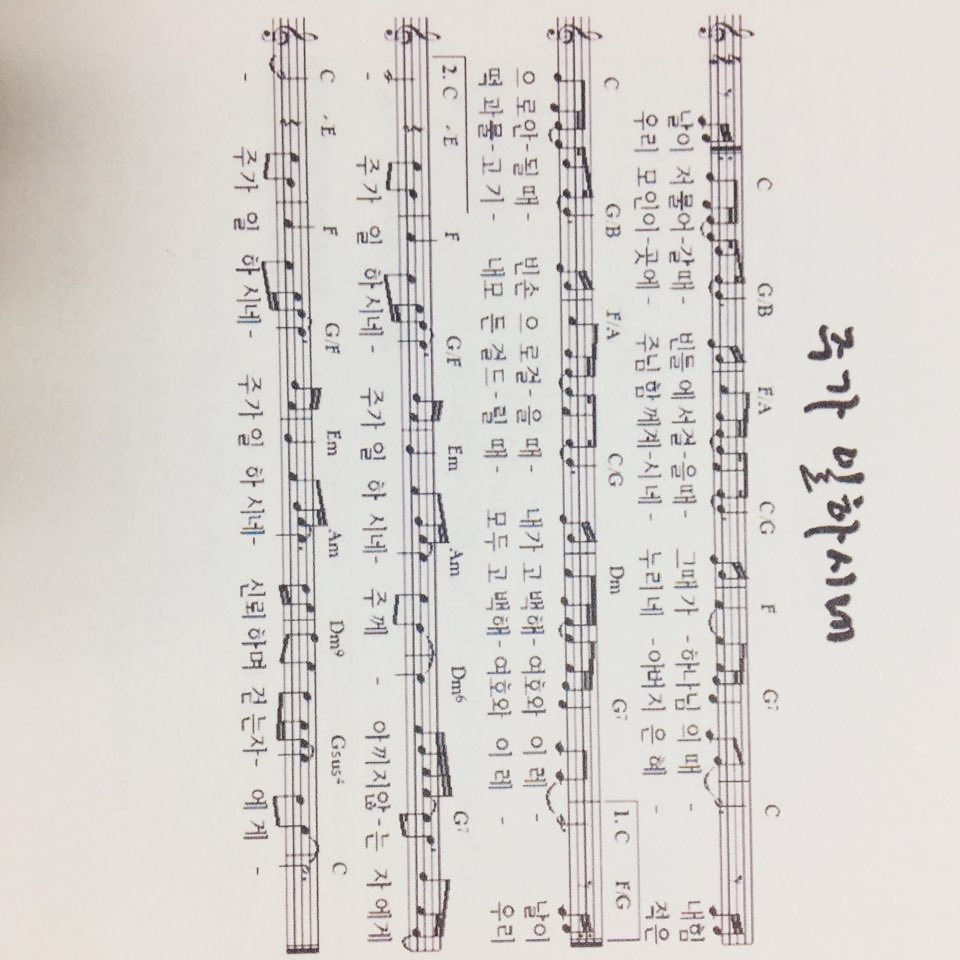 주가 일하시네
C G/B F/A C/G F G7 C
날이 저물어-갈때- 빈들에서걸-을때- 그때가 -하나님의 때 - 내힘
우리 모인이-곳에- 주님함께계-시네- 누리네 -아버지 은혜 - 적은
C G/B F/A C/G Dm G7 1. C F/G
으로안-될때- 빈손으로걸-을때- 내가 고백해-여호와 이레 - 날이
떡과물-고기- 내모든걸드-릴때- 모두 고백해-여호와 이레 - 우리
2. C /E F G/F Em Am Dm6 G7
- 주가 일 하시네- 주가일 하시네- 주께 - 아끼지않-는 자에게
C /E F G/F Em Am Dm9 Gsus4 C
- 주가 일 하시네- 주가일 하시네- 신뢰하며 걷는자- 에게 -